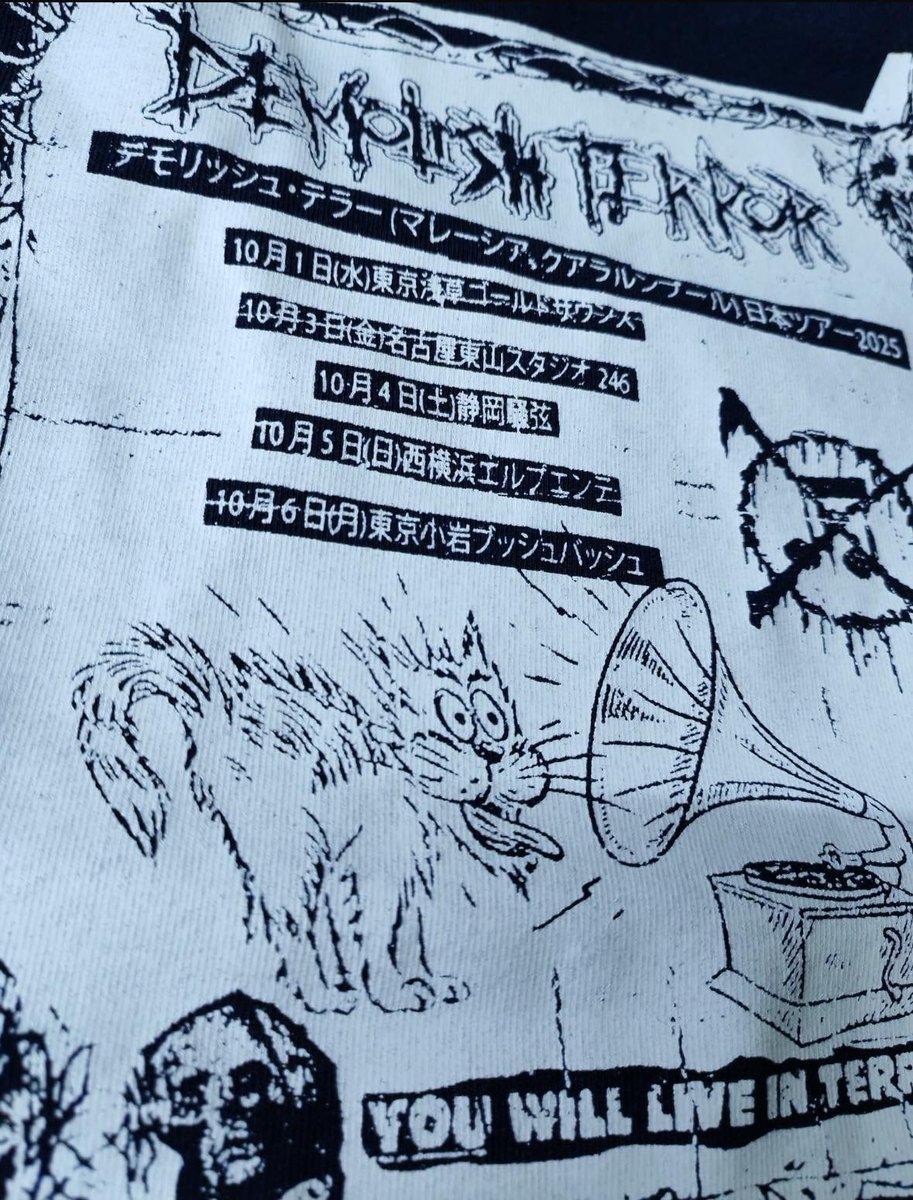 DEMOLISH TERROR
デモリッシュ・テラー (マレーシア、クアラルンプール) 日本ツアー2025
10月1日(水)東京浅草ゴールドサウンズ
10月3日(金)名古屋東山スタジオ246
10月4日(土)静岡騒弦
10月5日(日)西横浜エルプエンテ
10月6日(月)東京小岩ブッシュバッシュ
YOU WILL LIVE IN TERR